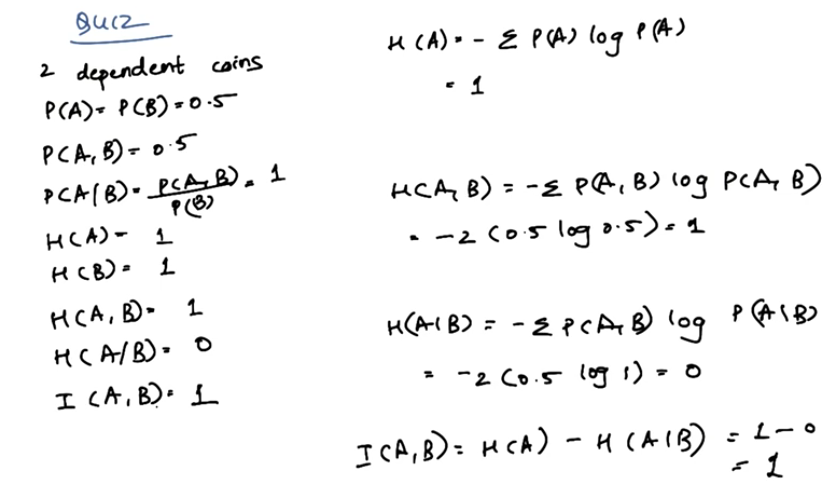 QUIZ
2 dependent coins
P(A)= P(B)=0.5
P(A,B)= 0.5
P(A|B)= P(A,B)/P(B) = 1
H(A)= 1
H(B)= 1
H(A,B)= 1
H(A/B)= 0
I(A,B)= 1
H(A)= - Σ P(A) log P(A)
= 1
H(A,B) = -Σ P(A,B) log P(A,B)
= -2 (0.5 log 0.5)= 1
H(A|B) = -Σ P(A,B) log P(A|B)
= -2 (0.5 log 1) = 0
I(A,B)= H(A) - H(A|B) = 1-0
= 1